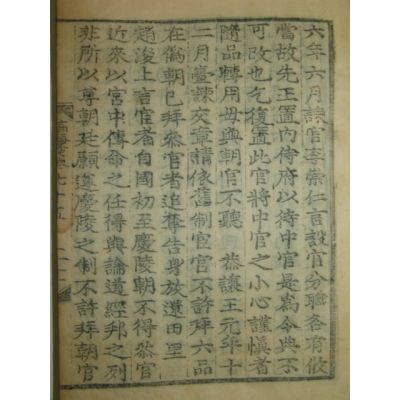 六年六月諫官李崇仁言設官分職各有攸
當故先王置內侍府以待中官是爲令典不
可改也乞復置此官將中官之小心謹愼者
隨品轉用毋與朝官不聽　恭讓王元年十
二月臺諫交章請依舊制宦官不許拜六品
在僞朝已拜叅官者追奪告身放還田里
趙浚上言宦者自國初至慶陵朝不得叅官
近來以宮中傳命之任得與論道經邦之列
非所以尊朝廷願遵慶陵之制不許拜朝官
七十五